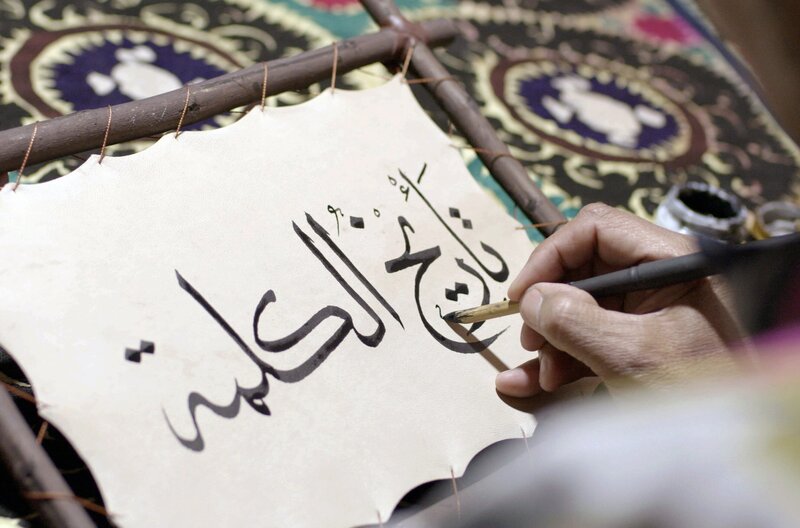 تأريخ الكلمة